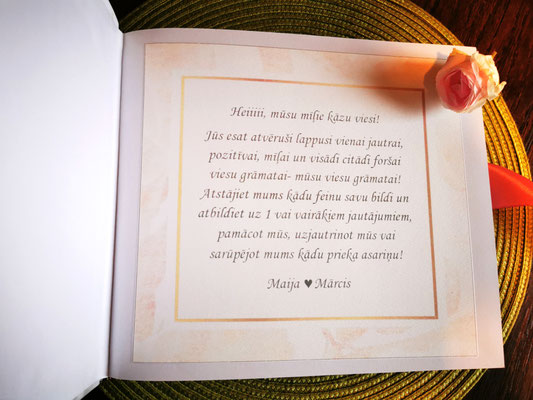 Heiiiii, mūsu mīļie kāzu viesi!
Jūs esat atvēruši lappusi vienai jautrai,
pozitīvai, mīļai un visādi citādi foršai
viesu grāmatai- mūsu viesu grāmatai!
Atstājiet mums kādu feinu savu bildi un
atbildiet uz 1 vai vairākiem jautājumiem,
pamācot mūs, uzjautrinot mūs vai
sarūpējot mums kādu prieka asariņu!
Maija ♥ Mārcis